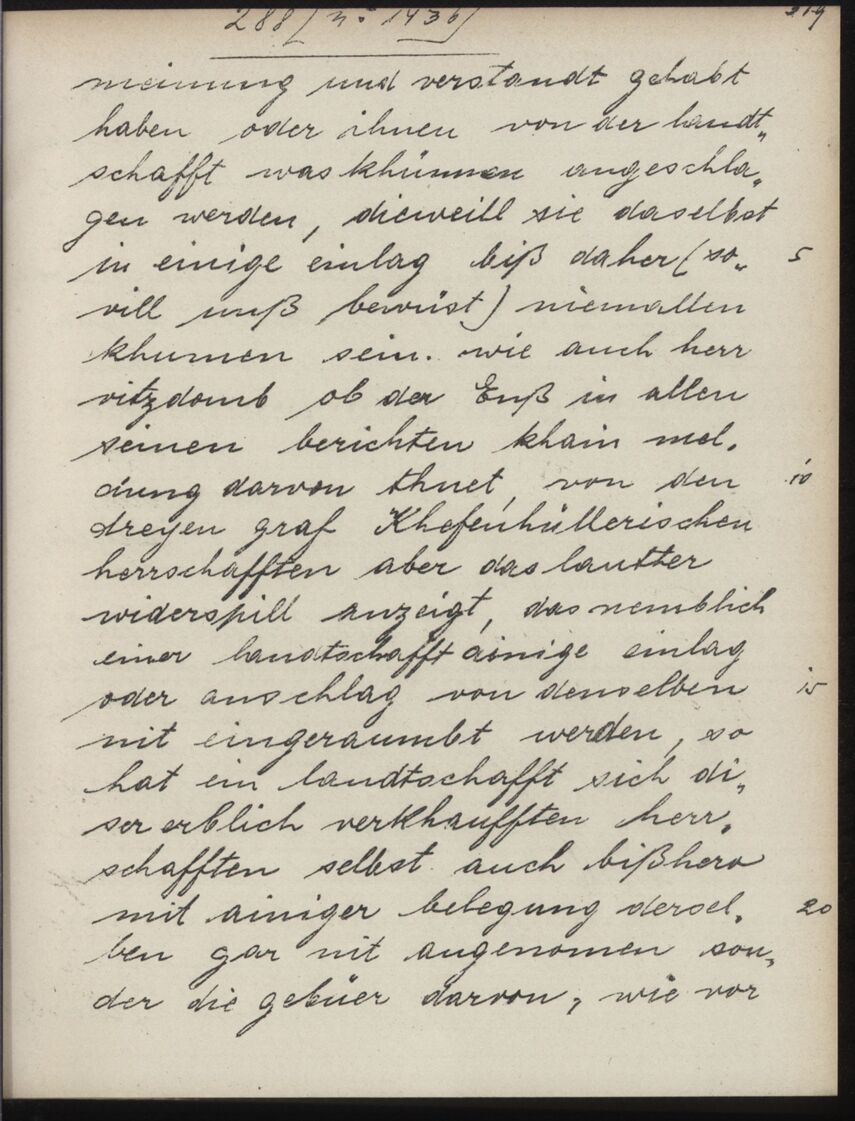 288 [n: 1436] 219
meinung und verstandt gehabt
haben oder ihnen von der landt„
schafft was khünnen angeschla„
gen werden, dieweill sie daselbst
in einige einlag biß daher (so„ 5
vill unß bewüst) niemallen
khumen sein. wie auch herr
vitzdomb ob der Enß in allen
seinen berichten khain mel„
dung darvon thuet, von den 10
dreyen graf Khefenhüllerischen
herrschafften aber das lautter
widerspill anzeigt, das nemblich
einer landtschafft ainige einlag
oder anschlag von denselben 15
nit eingeraumbt werden, so
hat ein landtschafft sich di„
ser erblich verkhaufften herr„
schafften selbst auch bißhero
mit ainiger belegung dersel„ 20
ben gar nit angenomen son„
der die gebüer darvon, wie vor